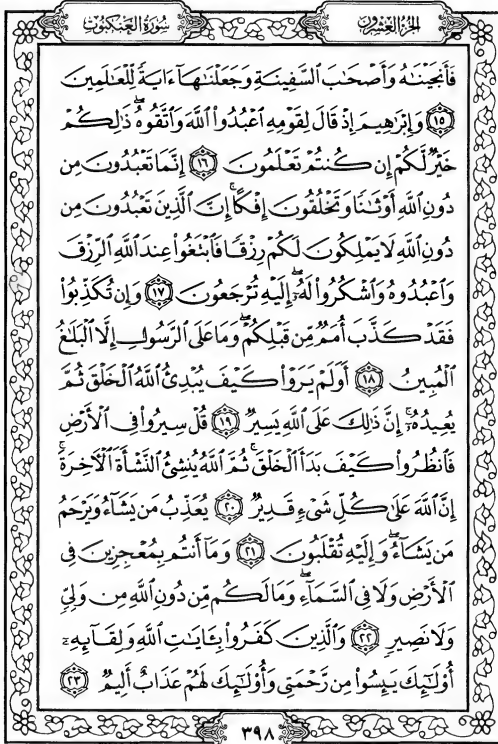 سورة العنكبوت
الجزء العشرون
فَأَنجَيْنَٰهُ وَأَصْحَٰبَ ٱلسَّفِينَةِ وَجَعَلْنَٰهَآ ءَايَةً لِّلْعَٰلَمِينَ
﴿١٥﴾ وَإِبْرَٰهِيمَ إِذْ قَالَ لِقَوْمِهِ ٱعْبُدُوا۟ ٱللَّهَ وَٱتَّقُوهُ ۖ ذَٰلِكُمْ
خَيْرٌ لَّكُمْ إِن كُنتُمْ تَعْلَمُونَ ﴿١٦﴾ إِنَّمَا تَعْبُدُونَ مِن
دُونِ ٱللَّهِ أَوْثَٰنًا وَتَخْلُقُونَ إِفْكًا ۚ إِنَّ ٱلَّذِينَ تَعْبُدُونَ مِن
دُونِ ٱللَّهِ لَا يَمْلِكُونَ لَكُمْ رِزْقًا فَٱبْتَغُوا۟ عِندَ ٱللَّهِ ٱلرِّزْقَ
وَٱعْبُدُوهُ وَٱشْكُرُوا۟ لَهُۥٓ ۖ إِلَيْهِ تُرْجَعُونَ ﴿١٧﴾ وَإِن تُكَذِّبُوا۟
فَقَدْ كَذَّبَ أُمَمٌ مِّن قَبْلِكُمْ ۖ وَمَا عَلَى ٱلرَّسُولِ إِلَّا ٱلْبَلَٰغُ
ٱلْمُبِينُ ﴿١٨﴾ أَوَلَمْ يَرَوْا۟ كَيْفَ يُبْدِئُ ٱللَّهُ ٱلْخَلْقَ ثُمَّ
يُعِيدُهُۥٓ ۚ إِنَّ ذَٰلِكَ عَلَى ٱللَّهِ يَسِيرٌ ﴿١٩﴾ قُلْ سِيرُوا۟ فِى ٱلْأَرْضِ
فَٱنظُرُوا۟ كَيْفَ بَدَأَ ٱلْخَلْقَ ۚ ثُمَّ ٱللَّهُ يُنشِئُ ٱلنَّشْأَةَ ٱلْءَاخِرَةَ ۚ
إِنَّ ٱللَّهَ عَلَىٰ كُلِّ شَىْءٍ قَدِيرٌ ﴿٢٠﴾ يُعَذِّبُ مَن يَشَآءُ وَيَرْحَمُ
مَن يَشَآءُ ۖ وَإِلَيْهِ تُقْلَبُونَ ﴿٢١﴾ وَمَآ أَنتُم بِمُعْجِزِينَ فِى
ٱلْأَرْضِ وَلَا فِى ٱلسَّمَآءِ ۖ وَمَا لَكُم مِّن دُونِ ٱللَّهِ مِن وَلِىٍّ
وَلَا نَصِيرٍ ﴿٢٢﴾ وَٱلَّذِينَ كَفَرُوا۟ بِـَٔايَٰتِ ٱللَّهِ وَلِقَآئِهِۦٓ
أُو۟لَٰٓئِكَ يَئِسُوا۟ مِن رَّحْمَتِى وَأُو۟لَٰٓئِكَ لَهُمْ عَذَابٌ أَلِيمٌ ﴿٢٣﴾
٣٩٨